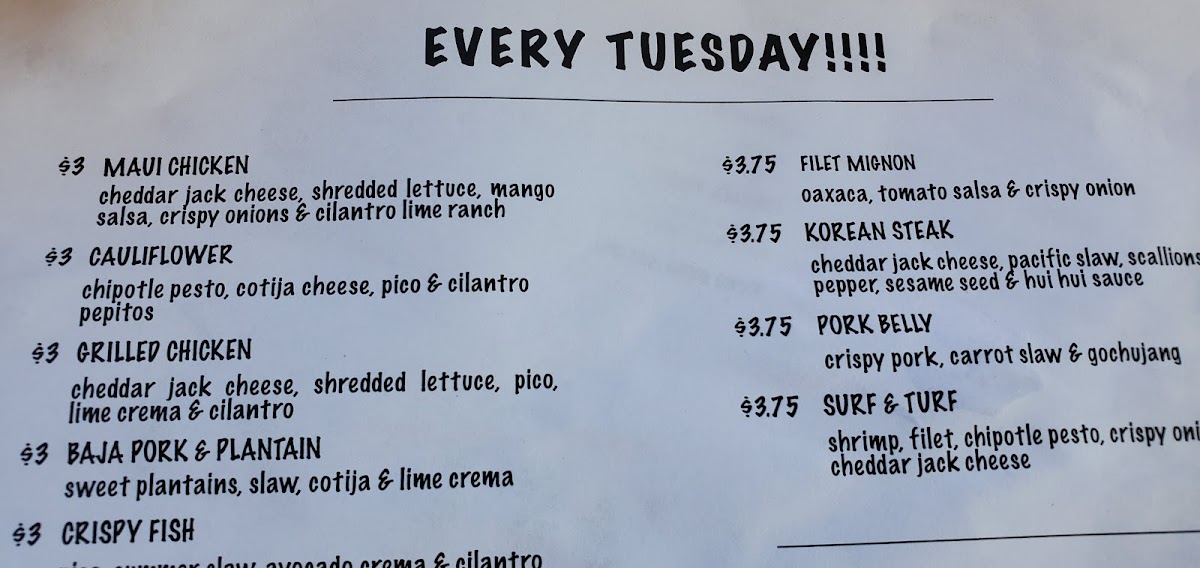 EVERY TUESDAY!!!!
$3 MAUI CHICKEN
cheddar jack cheese, shredded lettuce, mango
salsa, crispy onions & cilantro lime ranch
$3 CAULIFLOWER
chipotle pesto, cotija cheese, pico & cilantro
pepitos
$3 GRILLED CHICKEN
cheddar jack cheese, shredded lettuce, pico,
lime crema & cilantro
$3 BAJA PORK & PLANTAIN
sweet plantains, slaw, cotija & lime crema
$3 CRISPY FISH
pico, summer slaw, avocado crema & cilantro
$3.75 FILET MIGNON
oaxaca, tomato salsa & crispy onion
$3.75 KOREAN STEAK
cheddar jack cheese, pacific slaw, scallions
pepper, sesame seed & hui hui sauce
$3.75 PORK BELLY
crispy pork, carrot slaw & gochujang
$3.75 SURF & TURF
shrimp, filet, chipotle pesto, crispy oni
cheddar jack cheese